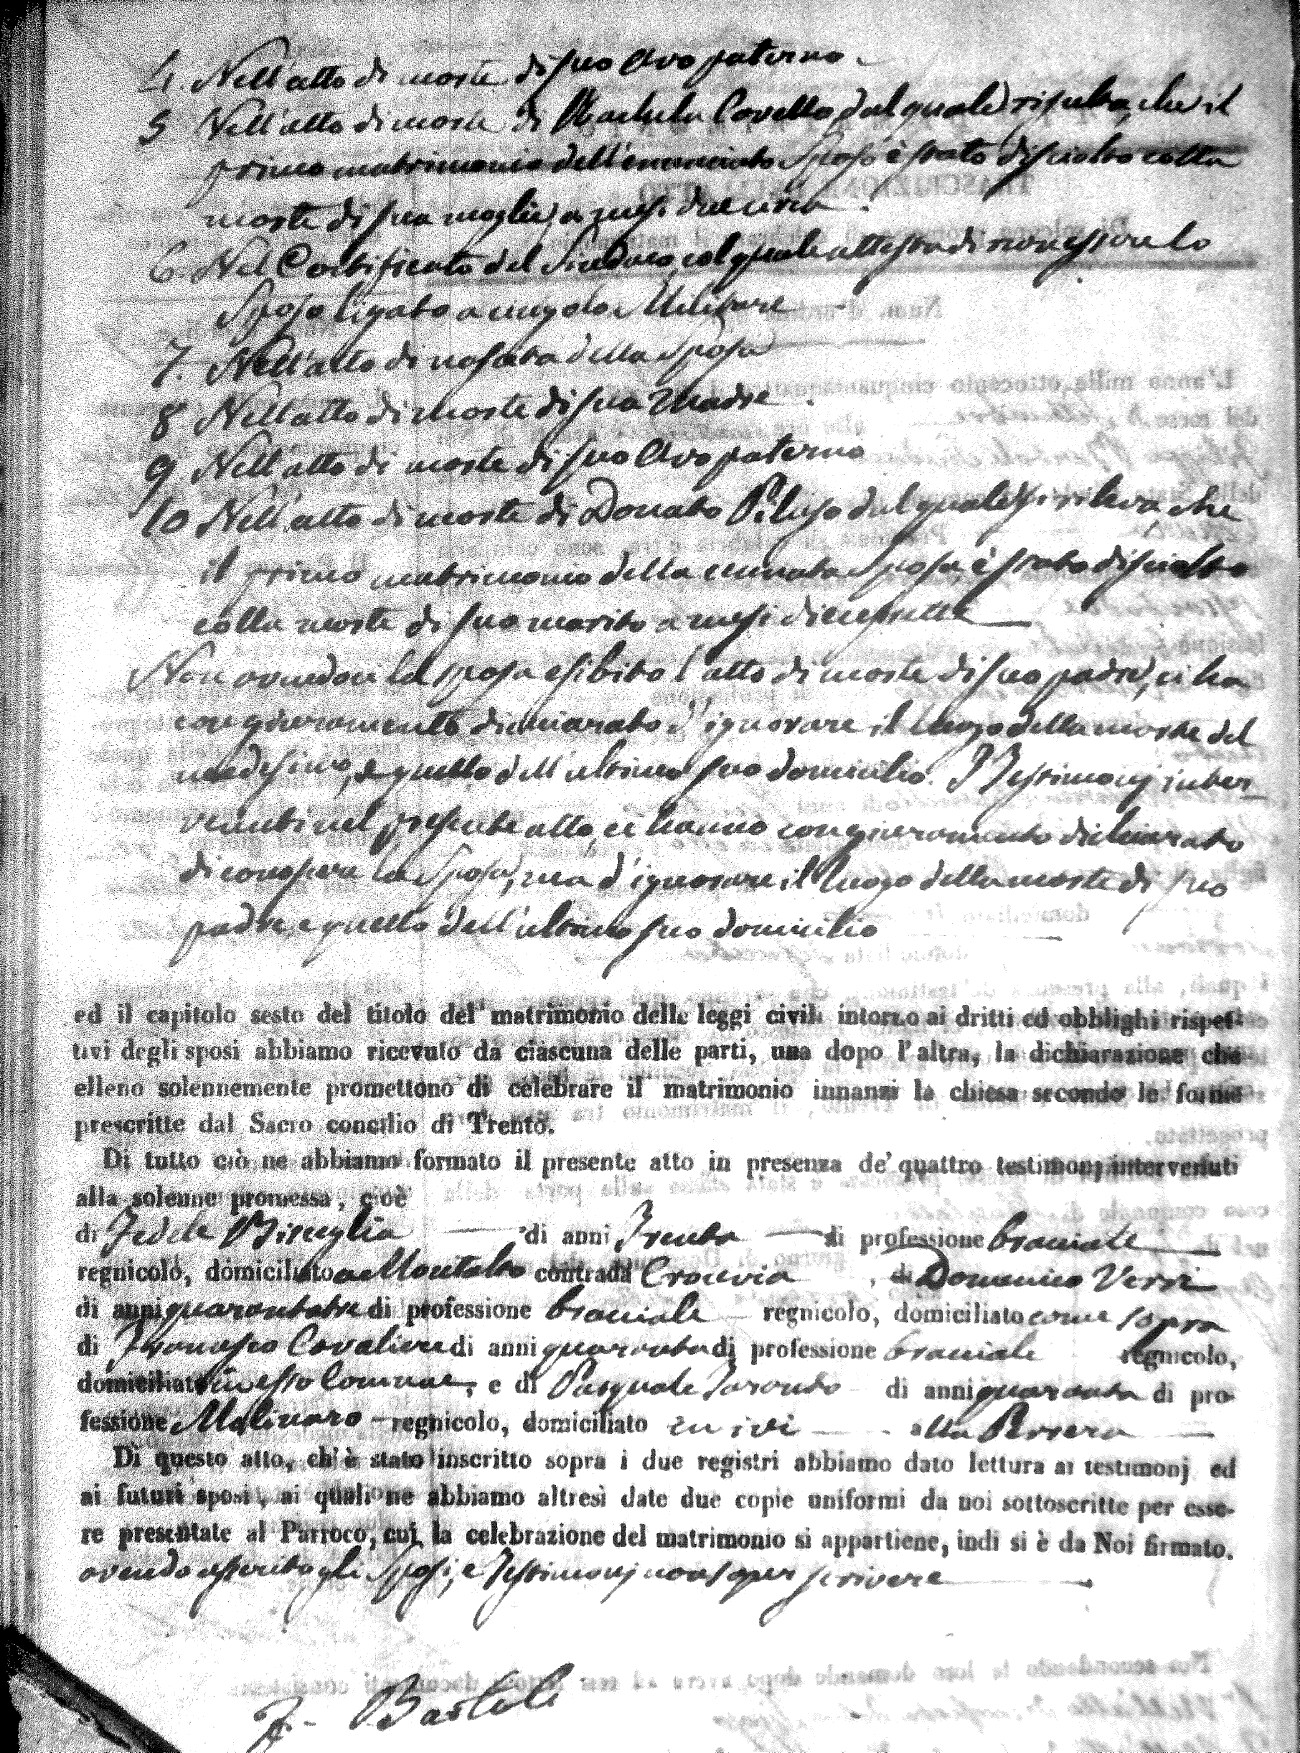 4. Nell'atto di morte di suo Avo paterno.
5 Nell'atto di morte di Rachela Covello dal quale risulta, che il
primo matrimonio dell'enunciato Sposo è stato disciolto colla
morte di sua moglie, a mesi due circa.
6. Nel Certificato del Sindaco, col quale attesta di non essere lo
Sposo ligato a cingolo Militare
7. Nell'atto di nascita della Sposa
8 Nell'atto di morte di sua Madre.
9 Nell'atto di morte di suo Avo paterno
10 Nell'atto di morte di Donato Piluso dal quale si rileva, che
il primo matrimonio della Sposa è stato disciolto
colla morte di suo marito a mesi diecisette
Non avendoci la sposa esibito l'atto di morte di suo padre, ci ha
con giuramento dichiarato d'ignorare il luogo della morte del
medesimo, e quello dell'ultimo suo domicilio. I Testimonj inter-
venuti nel presente atto, ci hanno con giuramento dichiarato
di conoscere la Sposa, ma d'ignorare il luogo della morte di suo
padre, e quello dell'ultimo suo domicilio
ed il capitolo sesto del titolo del matrimonio delle leggi civili intorno ai dritti ed obblighi rispet-
tivi degli sposi abbiamo ricevuto da ciascuna delle parti, una dopo l'altra, la dichiarazione che
elleno solennemente promettono di celebrare il matrimonio innanzi la chiesa secondo le forme
prescritte dal Sacro concilio di Trento.
Di tutto ciò ne abbiamo formato il presente atto in presenza de' quattro testimonj intervenuti
alla solenne promessa, cioè
di Fedele Bisceglia di anni Trenta di professione bracciale
regnicolo, domiciliato a Montalto contrada Crocevia, di Domenico Verri
di anni quarantatre di professione bracciale regnicolo, domiciliato come sopra
di Francesco Cavaliere di anni quaranta di professione bracciale regnicolo,
domiciliato in esso Comune, e di Pasquale Taranto di anni quaranta di pro-
fessione Molinaro regnicolo, domiciliato in ivi alla
Di questo atto, ch'è stato inscritto sopra i due registri abbiamo dato lettura ai testimonj ed
ai futuri sposi, ai quali ne abbiamo altresì date due copie uniformi da noi sottoscritte per esse-
re presentate al Parroco, cui la celebrazione del matrimonio si appartiene, indi si è da Noi firmato.
avendo asserito gli Sposi, e Testimonj non saper scrivere